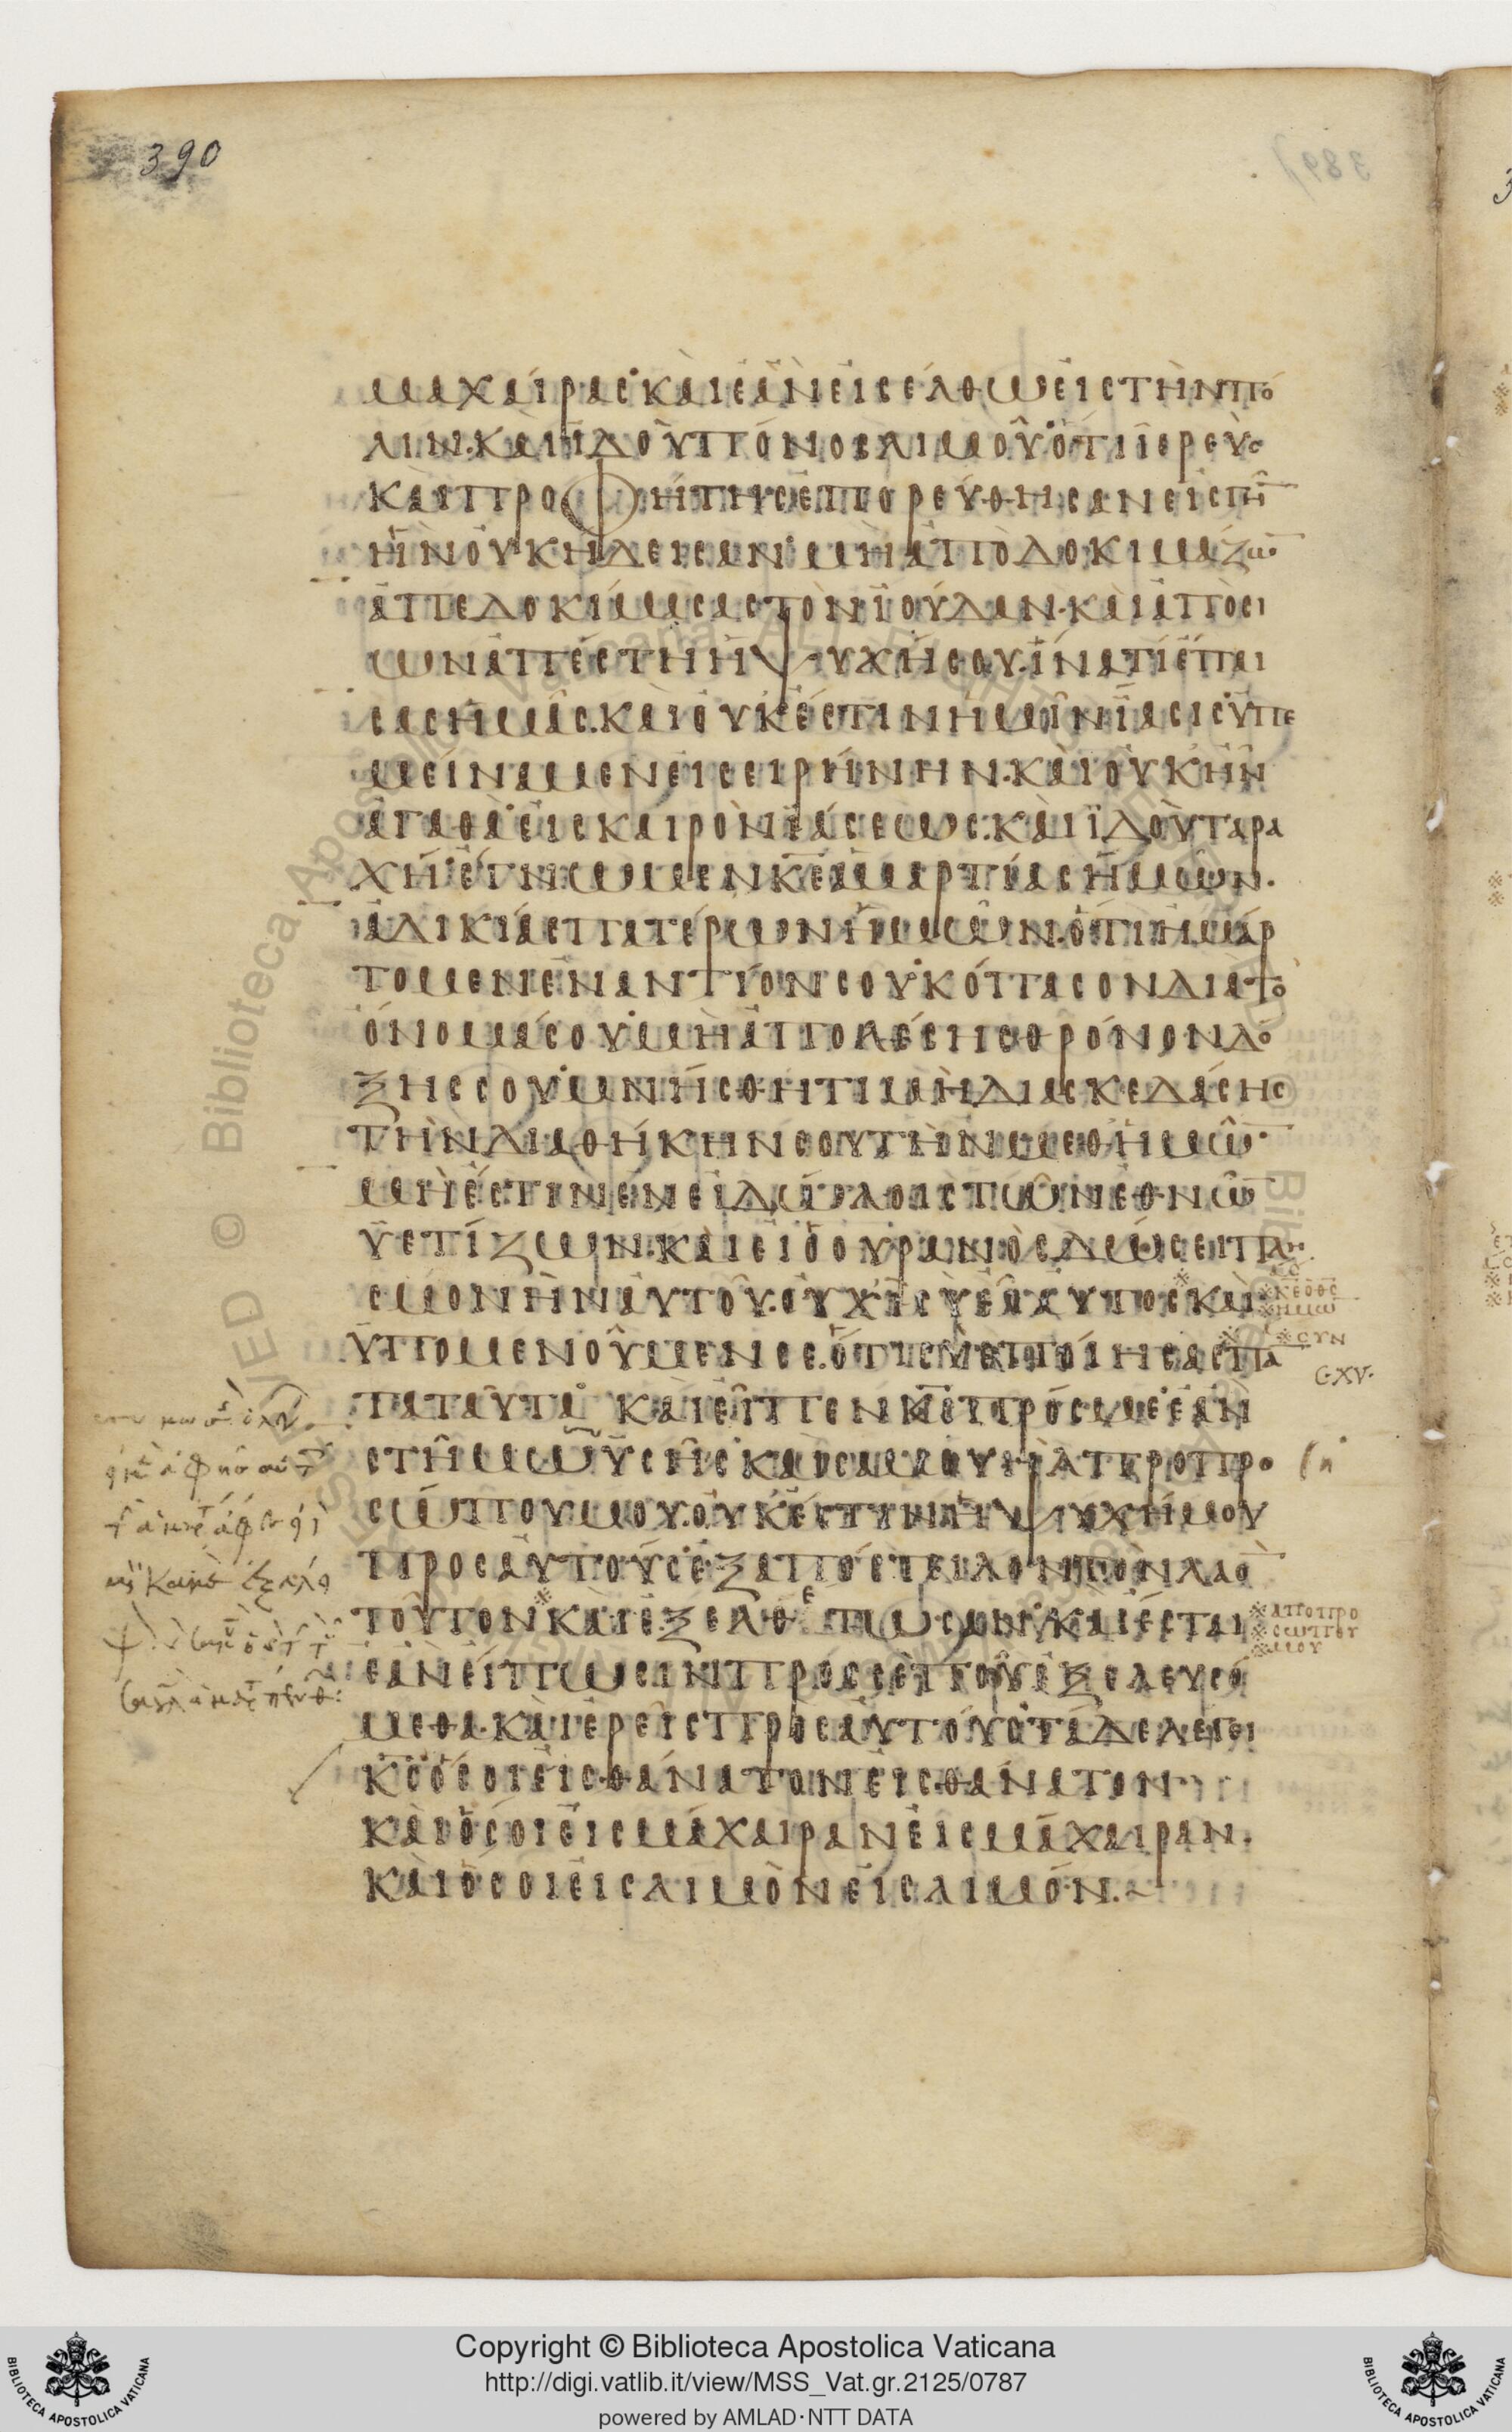 390
μαχαίρας· καὶ ἐὰν εἰσέλθω εἰς τὴν πό
λιν· καὶ ἰδοὺ πόνος λιμοῦ· ὅτι ἱερεὺς
καὶ προφήτης ἐπορεύθησαν εἰς γῆ̅
ἣν οὐκ ἤδεισαν· μὴ ἀποδοκιμάζω̅·
ἀπεδοκίμασας τὸν ἰούδαν· καὶ ἀπὸ σι
ὼν ἀπέστη ἡ ψυχή σου· ἵνα τί ἔπαι
σας ἡμᾶς· καὶ οὐκ ἔστιν ἡμῖν ἴασις ὑπε
μείναμεν εἰς εἰρήνην· καὶ οὐκ ἦν
ἀγαθά· εἰς καιρὸν ἰάσεως· καὶ ἰδοὺ ταρα
χή· ἔγνωμεν κ̅ε̅ ἁμαρτίας ἡμῶν·
ἀδικίας πατέρων ἡμῶν· ὅτι ἡμάρ
τομεν ἐναντίον σου· κόπασον διὰ τὸ
ὄνομά σου· μὴ ἀπολέσης θρόνον δό
ξης σου· μνήσθητι μὴ διασκεδάσης
τὴν διαθήκην σου τὴν μεθ ἡμῶ̅·
μὴ ἔστιν ἐν εἰδώλοις τῶν ἐθνῶ̅
ὑετίζων· καὶ εἰ ὁ οὐρανὸς δώσει πλη
σμονὴν αὐτοῦ· οὐχὶ σὺ εἶ αὐτός· καὶ
ὑπομενοῦμέν σε· ὅτι σὺ ἐποίησας πά
τα ταῦτα· καὶ εἶπεν κ̅ς̅ πρός με· ἐὰν
στῆ μωϋσῆς καὶ σαμουὴλ πρὸ προ
σώπου μου· οὐκ ἔστιν ἡ ψυχή μου
πρὸς αὐτούς· ἐξαπόστειλον τὸν λαὸ̅
τοῦτον καὶ ἐξελθέτωσαν· καὶ ἔσται
ἐὰν εἴπωσιν πρός σε ποῦ ἐξελευσό
μεθα· καὶ ἐρεῖς πρὸς αὐτούς τάδε λέγει
κ̅ς̅ ὅσοι εἰς θάνατον εἰς θάνατον
καὶ ὅσοι εἰς μάχαιραν εἰς μάχαιραν·
καὶ ὅσοι εἰς λιμὸν εἰς λιμόν·
※κ̅ε̅ ὁ θ̅ς̅
※ἡμῶ̅
※συν
G·XV·
※απο προ
※σωπου
※μου
Copyright © Biblioteca Apostolica Vaticana
http://digi.vatlib.it/view/MSS_Vat.gr.2125/0787
powered by AMLAD·NTT DATA
BIBLIOTECA APOSTOLICA VATICANA
BIBLIOTECA APOSTOLICA VATICANA